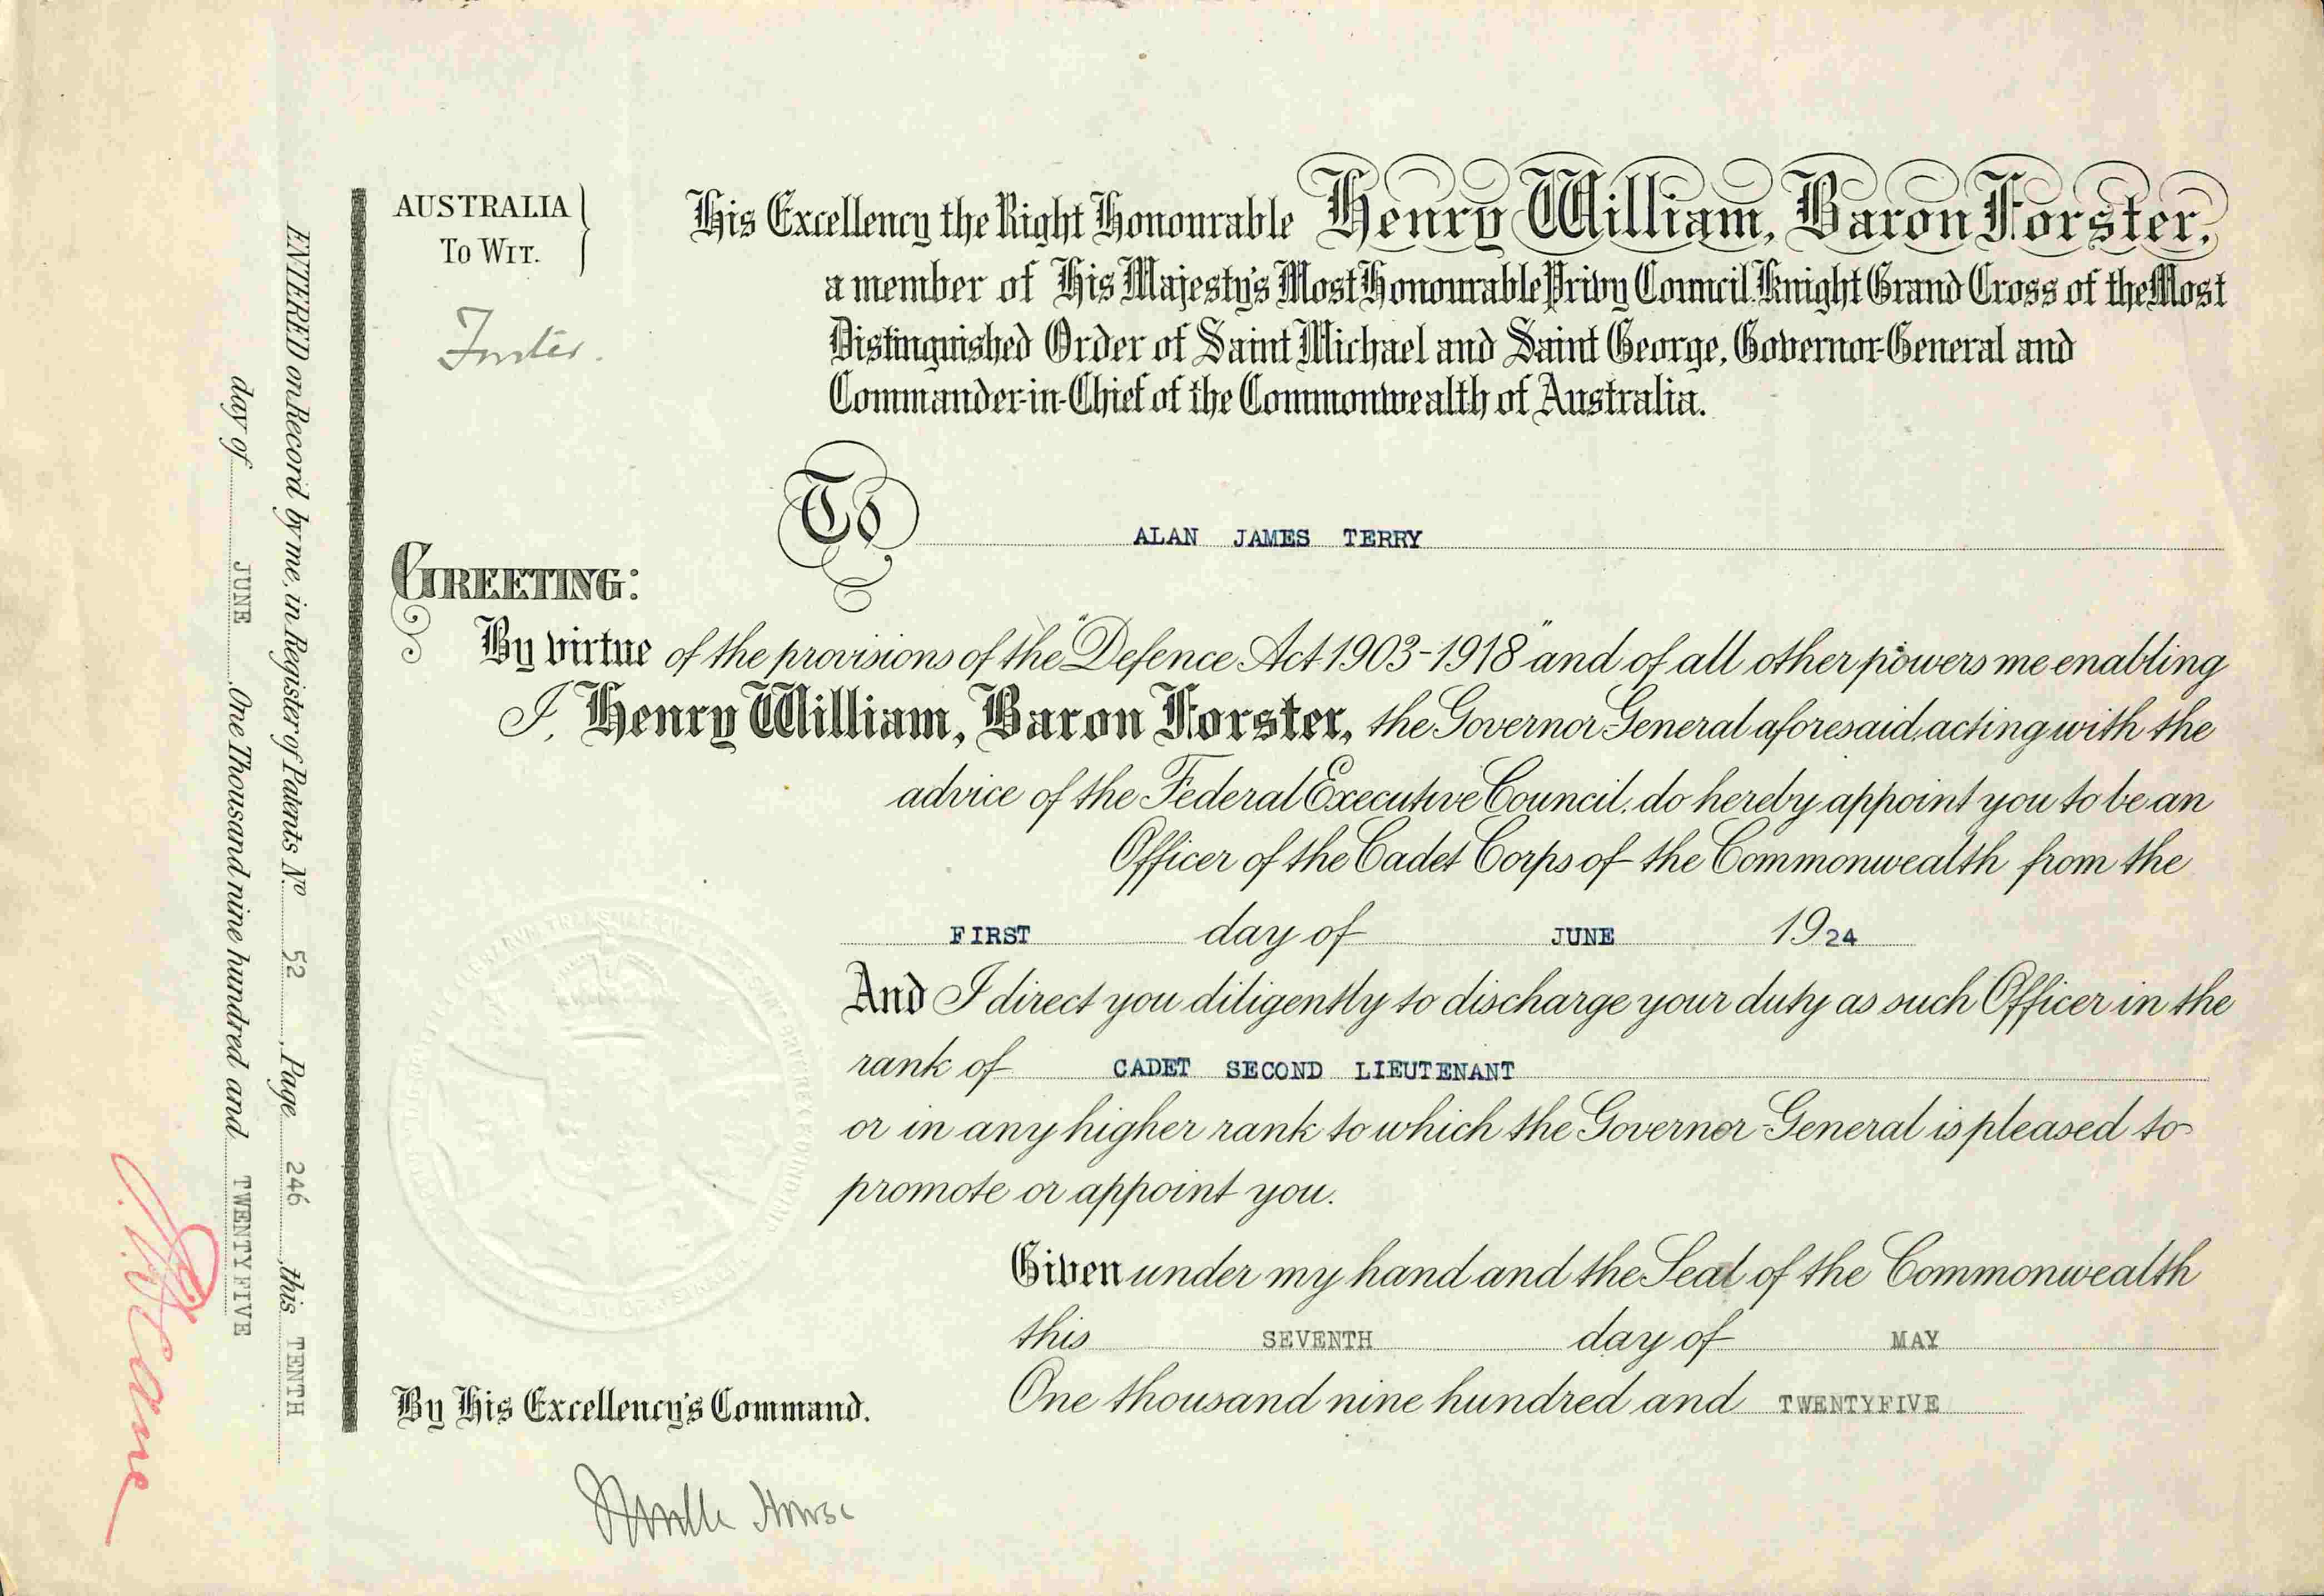 AUSTRALIA
TO WIT.
Forster.
His Excellency the Right Honourable Henry William, Baron Forster,
a member of His Majesty's Most Honourable Privy Council, Knight Grand Cross of the Most
Distinguished Order of Saint Michael and Saint George, Governor-General and
Commander-in-Chief of the Commonwealth of Australia.
To ALAN JAMES TERRY
GREETING:
By virtue of the provisions of the "Defence Act 1903-1918" and of all other powers me enabling
I, Henry William, Baron Forster, the Governor General aforesaid, acting with the
advice of the Federal Executive Council, do hereby appoint you to be an
Officer of the Cadet Corps of the Commonwealth from the
FIRST day of JUNE 1924
And I direct you diligently to discharge your duty as such Officer in the
rank of CADET SECOND LIEUTENANT
or in any higher rank to which the Governor General is pleased to
promote or appoint you.
Given under my hand and the Seal of the Commonwealth
this SEVENTH day of MAY
One thousand nine hundred and TWENTYFIVE
By His Excellency's Command.
Neville Howse
ENTERED on Record by me, in Register of Patents No. 52, Page 246 this TENTH
day of JUNE One Thousand nine hundred and TWENTY FIVE